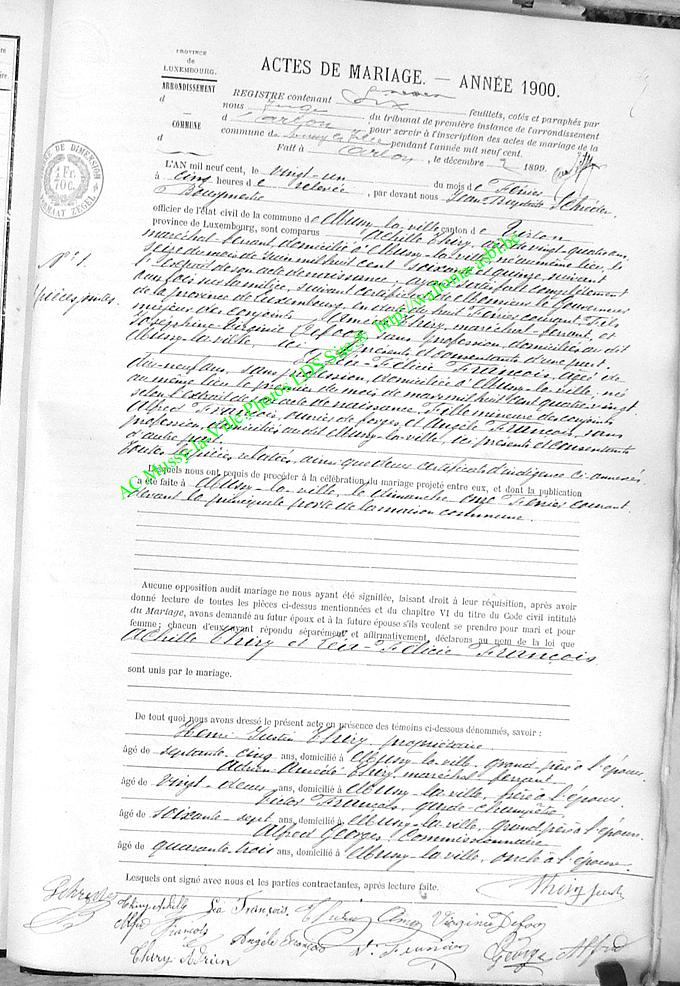 PROVINCE
de
LUXEMBOURG.
ARRONDISSEMENT
d
COMMUNE
d
ACTES DE MARIAGE. — ANNÉE 1900.
REGISTRE contenant Six feuillets, cotés et paraphés par
nous Juge du tribunal de première instance de l'arrondissement
d'Arlon pour servir à l'inscription des actes de mariage de la
commune de Mussy-la-Ville pendant l'année mil neuf cent.
Fait à Arlon, le décembre 1899.
DE DIMENSION
1 Fr.
70 C.
ZEGEL
L'AN mil neuf cent, le vingt-un du mois de Février
à cinq heures de relevée, par devant nous Jean Baptiste
Bourgmestre
officier de l'état civil de la commune de Mussy-la-ville canton de Virton
province de Luxembourg, sont comparus Achille Thiry, âgé de vingt-quatre ans,
maréchal-ferrant, domicilié à Mussy-la-ville, né au même lieu, le
seize du mois de Juin mil huit cent soixante et quinze, suivant
l'extrait de son acte de naissance, ayant satisfait complètement
aux lois sur la milice, suivant certificat de Monsieur le Gouverneur
de la province de Luxembourg en date du huit Février courant, fils
majeur des conjoints Amédé Thiry, maréchal-ferrant, et
Joséphine-Virginie Defooz, sans profession, domiciliés au dit
Mussy-la-ville, ici présents et consentants d'une part.
N° 1.
pièces jointes
Et Félicie François, âgée de
dix-neuf ans, sans profession, domiciliée à Mussy-la-ville, née
au même lieu le premier du mois de mars mil huit cent quatre-vingt
selon l'extrait de son acte de naissance, Fille mineure des conjoints
Alfred François, ouvrier de forges, et Angèle François, sans
profession, domiciliés au dit Mussy-la-ville, ici présents et consentants
d'autre part.
Toutes pièces relatées, ainsi que deux certificats d'indigence ci-annexés.
Lesquels nous ont requis de procéder à la célébration du mariage projeté entre eux, et dont la publication
a été faite à Mussy-la-ville, le dimanche onze Février courant
devant la principale porte de la maison commune.
AC Mussy-la-Ville Photos LDS Site © http://wallonia.asbl.be
Aucune opposition audit mariage ne nous ayant été signifiée, faisant droit à leur réquisition, après avoir
donné lecture de toutes les pièces ci-dessus mentionnées et du chapitre VI du titre du Code civil intitulé
du Mariage, avons demandé au futur époux et à la future épouse s'ils veulent se prendre pour mari et pour
femme ; chacun d'eux ayant répondu séparément et affirmativement, déclarons au nom de la loi que
Achille Thiry et Félicie François
sont unis par le mariage.
De tout quoi nous avons dressé le présent acte en présence des témoins ci-dessous dénommés, savoir :
Henri Justin Thiry, propriétaire
âgé de septante-cinq ans, domicilié à Mussy-la-ville, grand-père à l'époux.
Adrien Amédé Thiry, maréchal-ferrant
âgé de vingt-deux ans, domicilié à Mussy-la-ville, frère à l'époux.
Victor François, garde-champêtre
âgé de soixante-sept ans, domicilié à Mussy-la-ville, grand-père à l'épouse.
Alfred Georges, commissionnaire
âgé de quarante-trois ans, domicilié à Mussy-la-ville, oncle à l'épouse.
Lesquels ont signé avec nous et les parties contractantes, après lecture faite.
Thiry
Thiry Achille Léa François Virginie Defooz
Alfred François Angèle François V. François George Alfred
Thiry Adrien